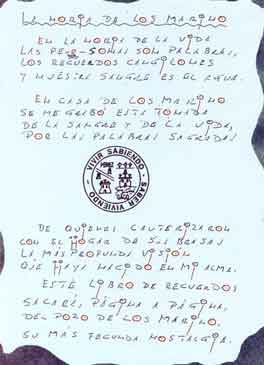 LA NORIA DE LOS MARINO
EN LA NORIA DE LA VIDA
LAS PE-R-SONAS SON PALABRAS,
LOS RECUERDOS CANGILONES
Y NUESTRA SANGRE ES EL AGUA.
EN CASA DE LOS MARINO
SE ME GRABÓ ESTA TONADA
DE LA SANGRE Y DE LA VIDA,
POR LAS PALABRAS SAGRADAS
VIVIR SABIENDO
SABER VIVIENDO
DE QUIENES CAUTERIZARON
CON EL HOGAR DE SUS BRASAS
LA MÁS PROFUNDA VISIÓN
QUE HAYA NACIDO EN MI ALMA.
ESTE LIBRO DE RECUERDOS
SACARÉ, PÁGINA A PÁGINA,
DEL POZO DE LOS MARINO.
SU MÁS FECUNDA NOSTALGIA.